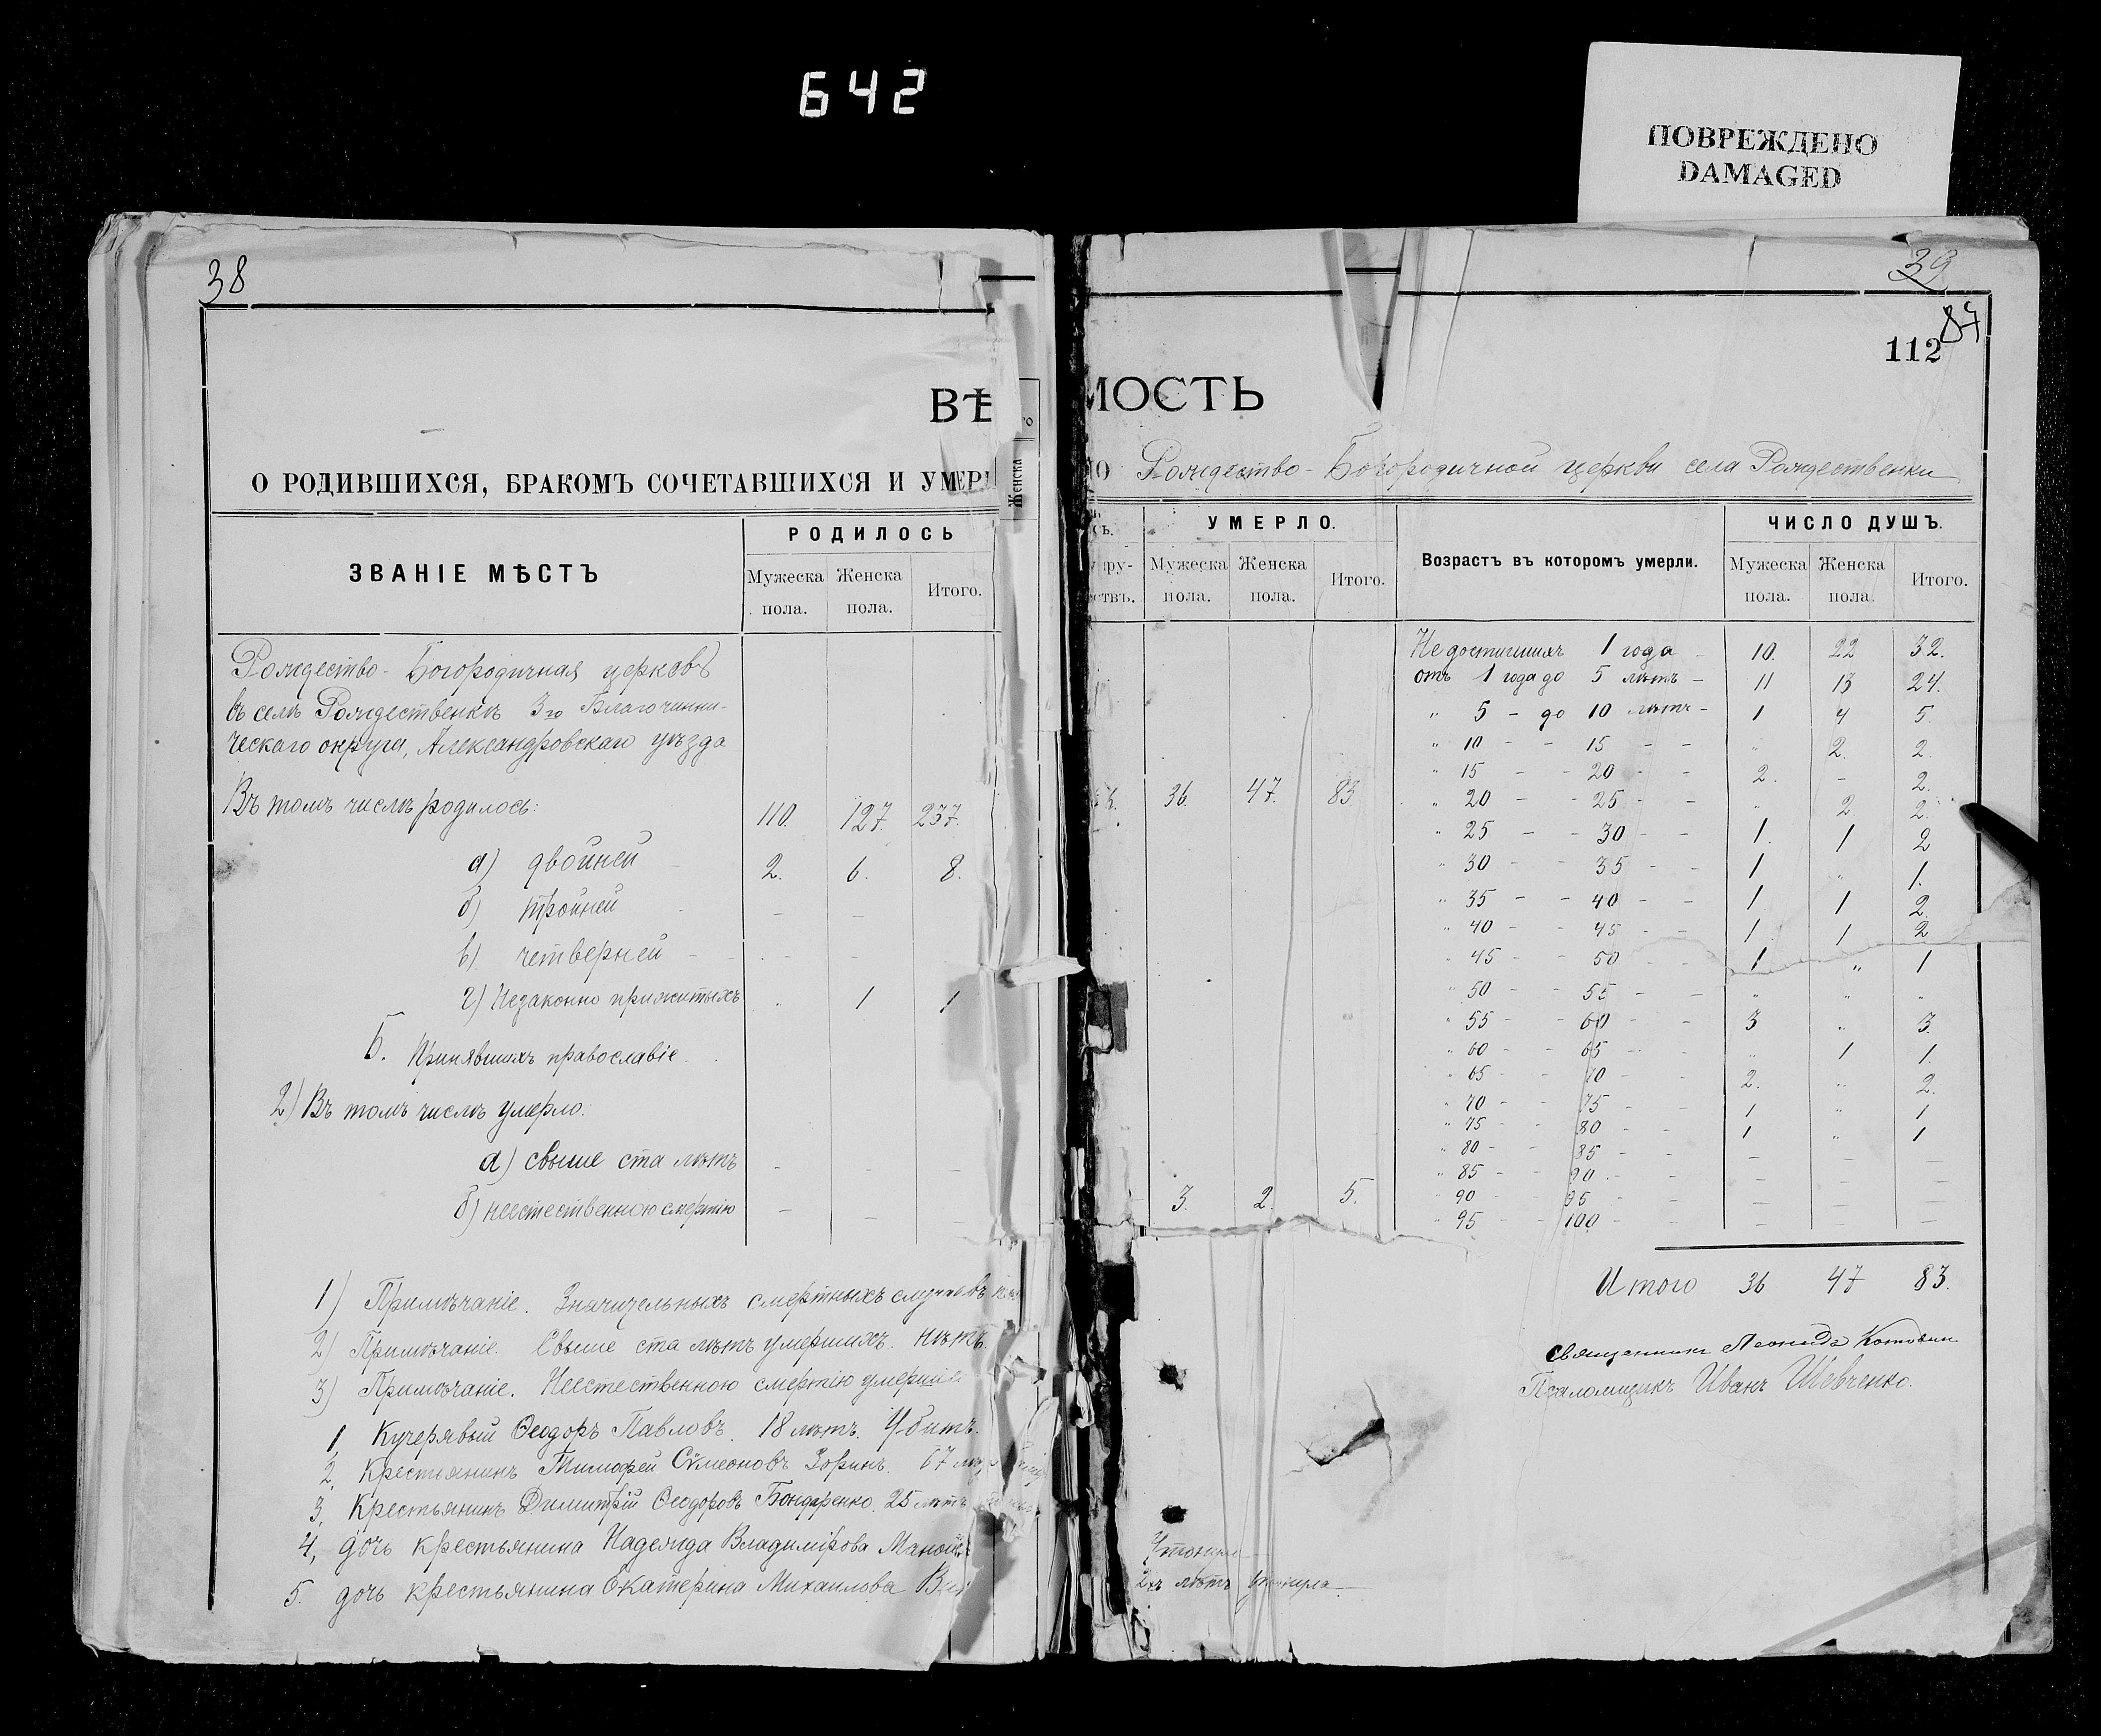 642
ПОВРЕЖДЕНО
DAMAGED
38
39
87
112
ВѢ
МОСТЬ
О РОДИВШИХСЯ, БРАКОМЪ СОЧЕТАВШИХСЯ И УМЕР
Рождество-Богородичной церкви села Рождественки
ЗВАНІЕ МѢСТЪ
РОДИЛОСЬ
Мужеска пола. Женска пола. Итого.
Женска
УМЕРЛО.
Мужеска пола. Женска пола. Итого.
Возрастъ въ которомъ умерли.
ЧИСЛО ДУШЪ.
Мужеска пола. Женска пола. Итого.
Рождество-Богородичная церковь
въ селѣ Рождественкѣ 3го Благочинни-
ческаго округа, Александровскаго уѣзда
Въ томъ числѣ родилось: 110. 127. 237.
а) двойней 2. 6. 8.
б) тройней - -
в) четверней - - - -
г) Незаконно прижитыхъ " 1 1
Б. Принявшихъ православіе
2) Въ томъ числѣ умерло:
а) свыше ста лѣтъ - - -
б) неестественною смертію - - -
36. 47. 83.
3. 2. 5.
Недостигшихъ 1 года - 10. 22 32.
отъ 1 года до 5 лѣтъ - 11 13 24.
" 5 - до 10 лѣтъ - 1 4 5.
" 10 - - 15 - - " 2. 2.
" 15 - - 20 - - 2. - 2.
" 20 - - 25 - - " 2 2.
" 25 - - 30 - - 1. 1 2
" 30 - - 35 - - 1 " 1.
" 35 - - 40 - - 1 1 2
" 40 - - 45 - - 1 1 2
" 45 - - 50 - - 1 " 1
" 50 - - 55 - - " " "
" 55 - - 60 - - 3 " 3.
" 60 - - 65 - - " 1 1.
" 65 - - 70 - - 2. " 2.
" 70 - - 75 - - 1 " 1
" 75 - - 80 - - 1 " 1
" 80 - - 85 - - - - -
" 85 - - 90 - - - - -
" 90 - - 95 - - - - -
" 95 - - 100 - - - - -
Итого 36 47 83.
Священникъ Леонидъ
Псаломщикъ Иванъ Шевченко.
1) Примѣчаніе. Значительныхъ смертныхъ случаевъ
2) Примѣчаніе. Свыше ста лѣтъ умершихъ нѣтъ.
3) Примѣчаніе. Неестественною смертію умершіе
1, Кучерявый Ѳеодоръ Павловъ. 18 лѣтъ. Убитъ.
2, Крестьянинъ Тимофей Сѵмеоновъ Зоринъ. 67
3, Крестьянинъ Димитрій Ѳеодоровъ Бондаренко. 25 лѣтъ
4, дочь крестьянина Надежда Владимірова
5. дочь крестьянина Екатерина Михаилова
2хъ лѣтъ